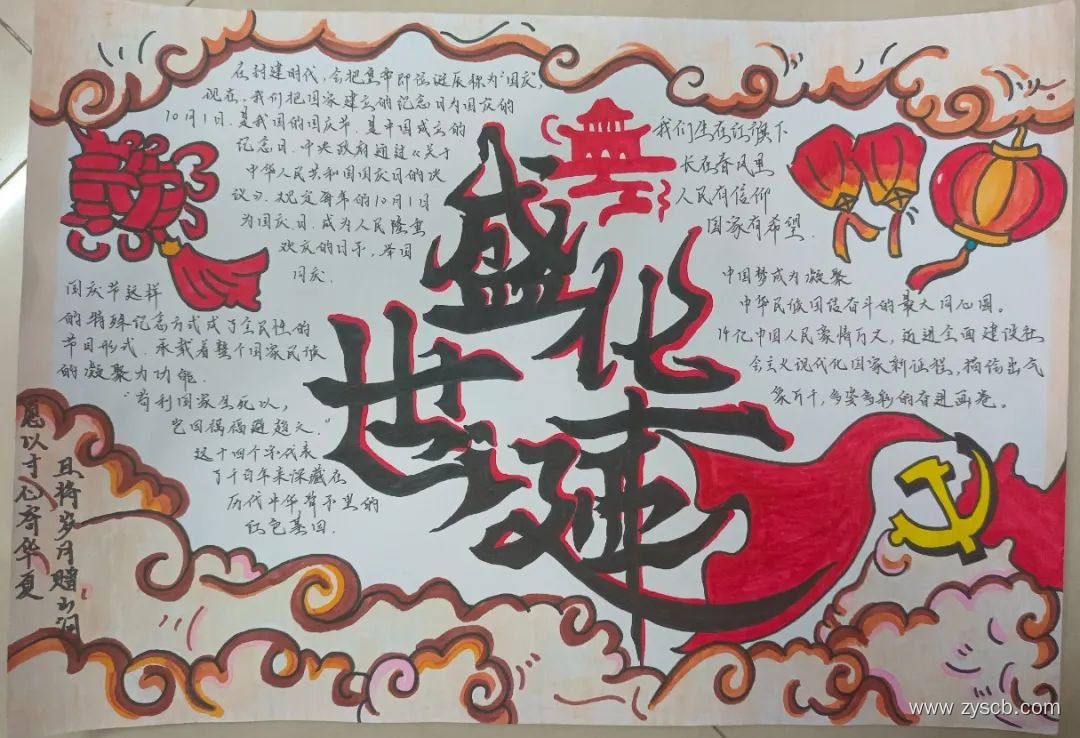 在封建时代,会把皇帝即位诞辰称为"国庆",
现在,我们把国家建立的纪念日为国庆的
10月1日.是我国的国庆节.是中国成立的
纪念日.中央政府通过《关于
中华人民共和国国庆日的决
议》.规定每年的10月1日
为国庆日.成为人民隆重
欢庆的日子,举国
同庆.
国庆节这样
的特殊纪念方式成了全民性的
节日形式.承载着整个国家民族
的凝聚力功能.
"苟利国家生死以,
岂因祸福避趋之."
这十四个字代表
了千百年来深藏在
历代中华骨子里的
红色基因.
盛
世
华
诞
我们生在红旗下
长在春风里
人民有信仰
国家有希望.
中国梦成为凝聚
中华民族团结奋斗的最大同心圆。
14亿中国人民豪情万丈,迈进全面建设社
会主义现代化国家新征程,描绘出气
象万千,多姿多彩的奋进画卷。
愿以寸心寄华夏
且将岁月赠山河
www.zyscb.com